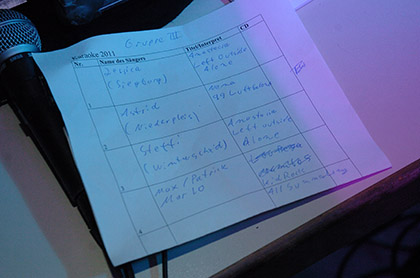 Gruppe III
Karaoke 2011
Nr. Name des Sängers Titel/Interpret CD
Jessica
(Siegburg)
Anastacia
Left Outside
Alone
1
Astrid
(Niederpleis)
Nena
99 Luftballons
2
Steffi
Anastacia
Left outside
Alone
3
Max / Patrick
Marco
Kid Rock
All Summer long
4